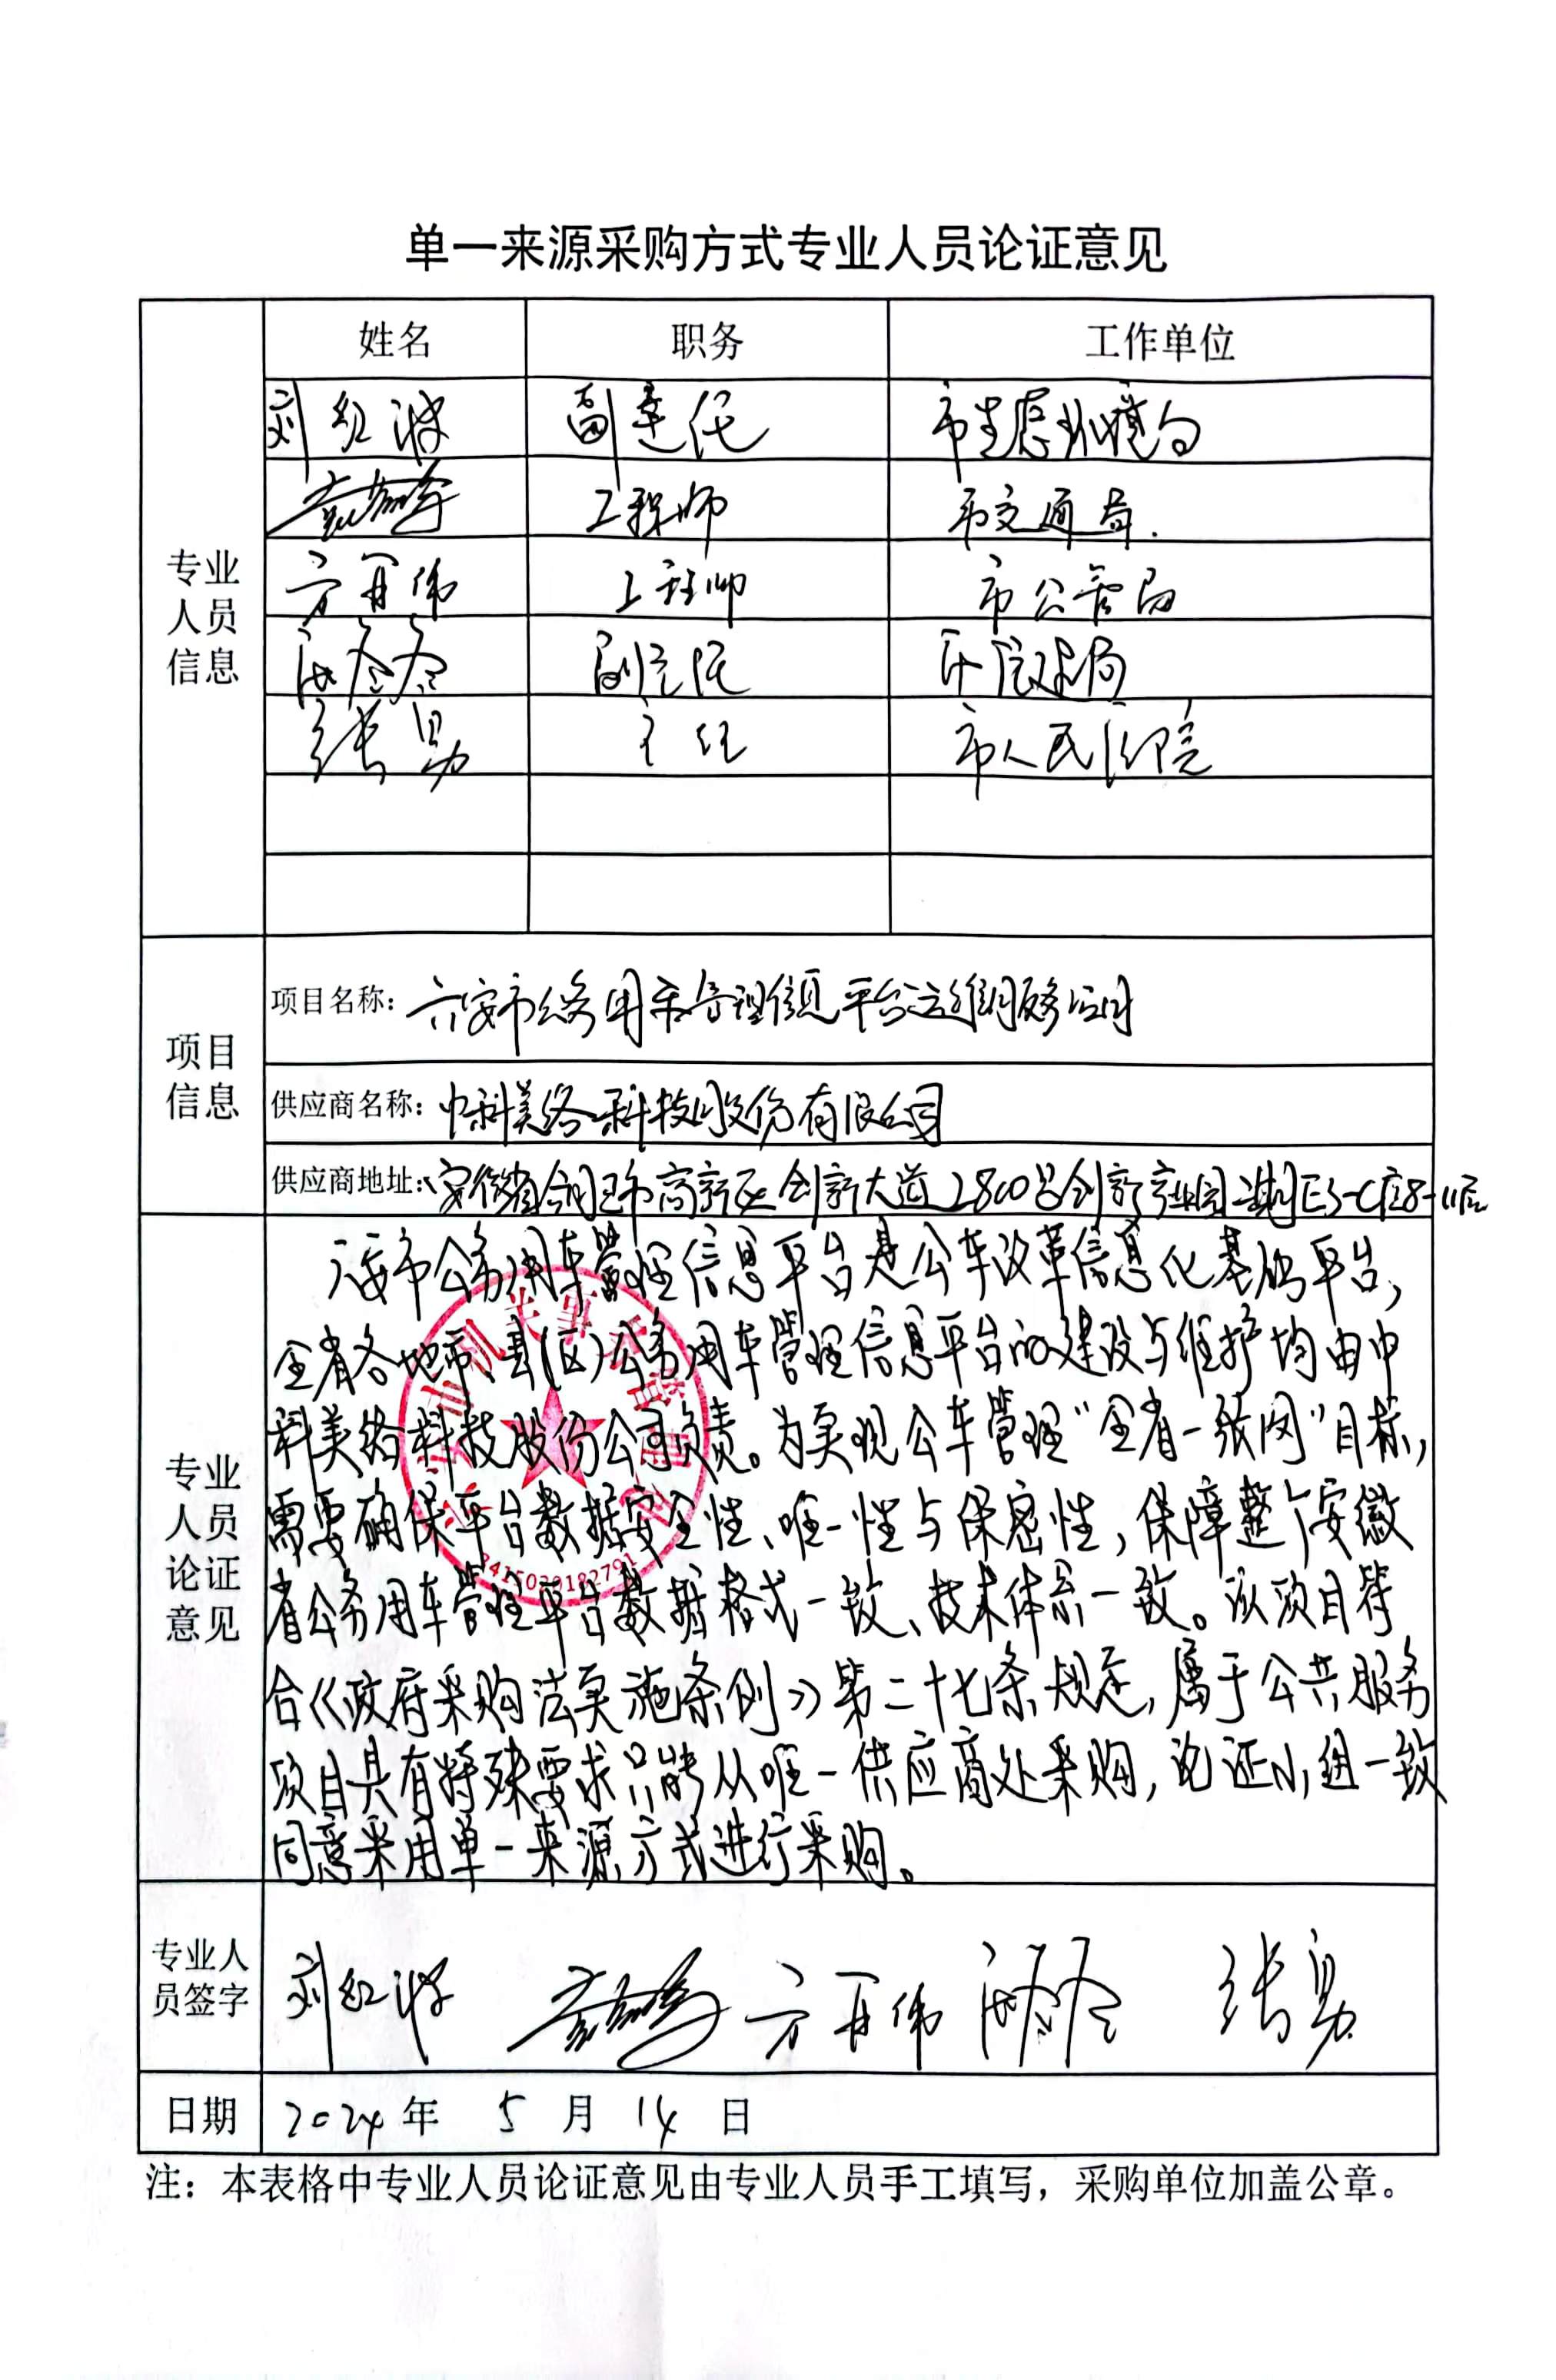 单一来源采购方式专业人员论证意见
专业人员信息
姓名 职务 工作单位
刘红波 副主任 市生态环境局
工程师 市交通局.
方再伟 工程师 市公管局
副主任 市住建局
张勇 主任 市人民医院
项目信息
项目名称：六安市公务用车管理信息平台运维服务合同
供应商名称：中科美络科技股份有限公司
供应商地址：安徽省合肥市高新区创新大道2800号创新产业园二期E3-C座8-11层
专业人员论证意见
六安市公务用车管理信息平台是公车改革信息化基础平台，
全省各地市、县(区)公务用车管理信息平台的建设与维护均由中
科美络科技股份公司负责。为实现公车管理“全省一张网”目标，
需要确保平台数据安全性、唯一性与保密性，保障整个安徽
省公务用车管理平台数据格式一致、技术体系一致。该项目符
合《政府采购法实施条例》第二十七条规定，属于公共服务
项目具有特殊要求只能从唯一供应商处采购，论证小组一致
同意采用单一来源方式进行采购。
3415020182791
专业人员签字
刘红波 方再伟 张勇
日期 2024年 5 月 14 日
注：本表格中专业人员论证意见由专业人员手工填写，采购单位加盖公章。